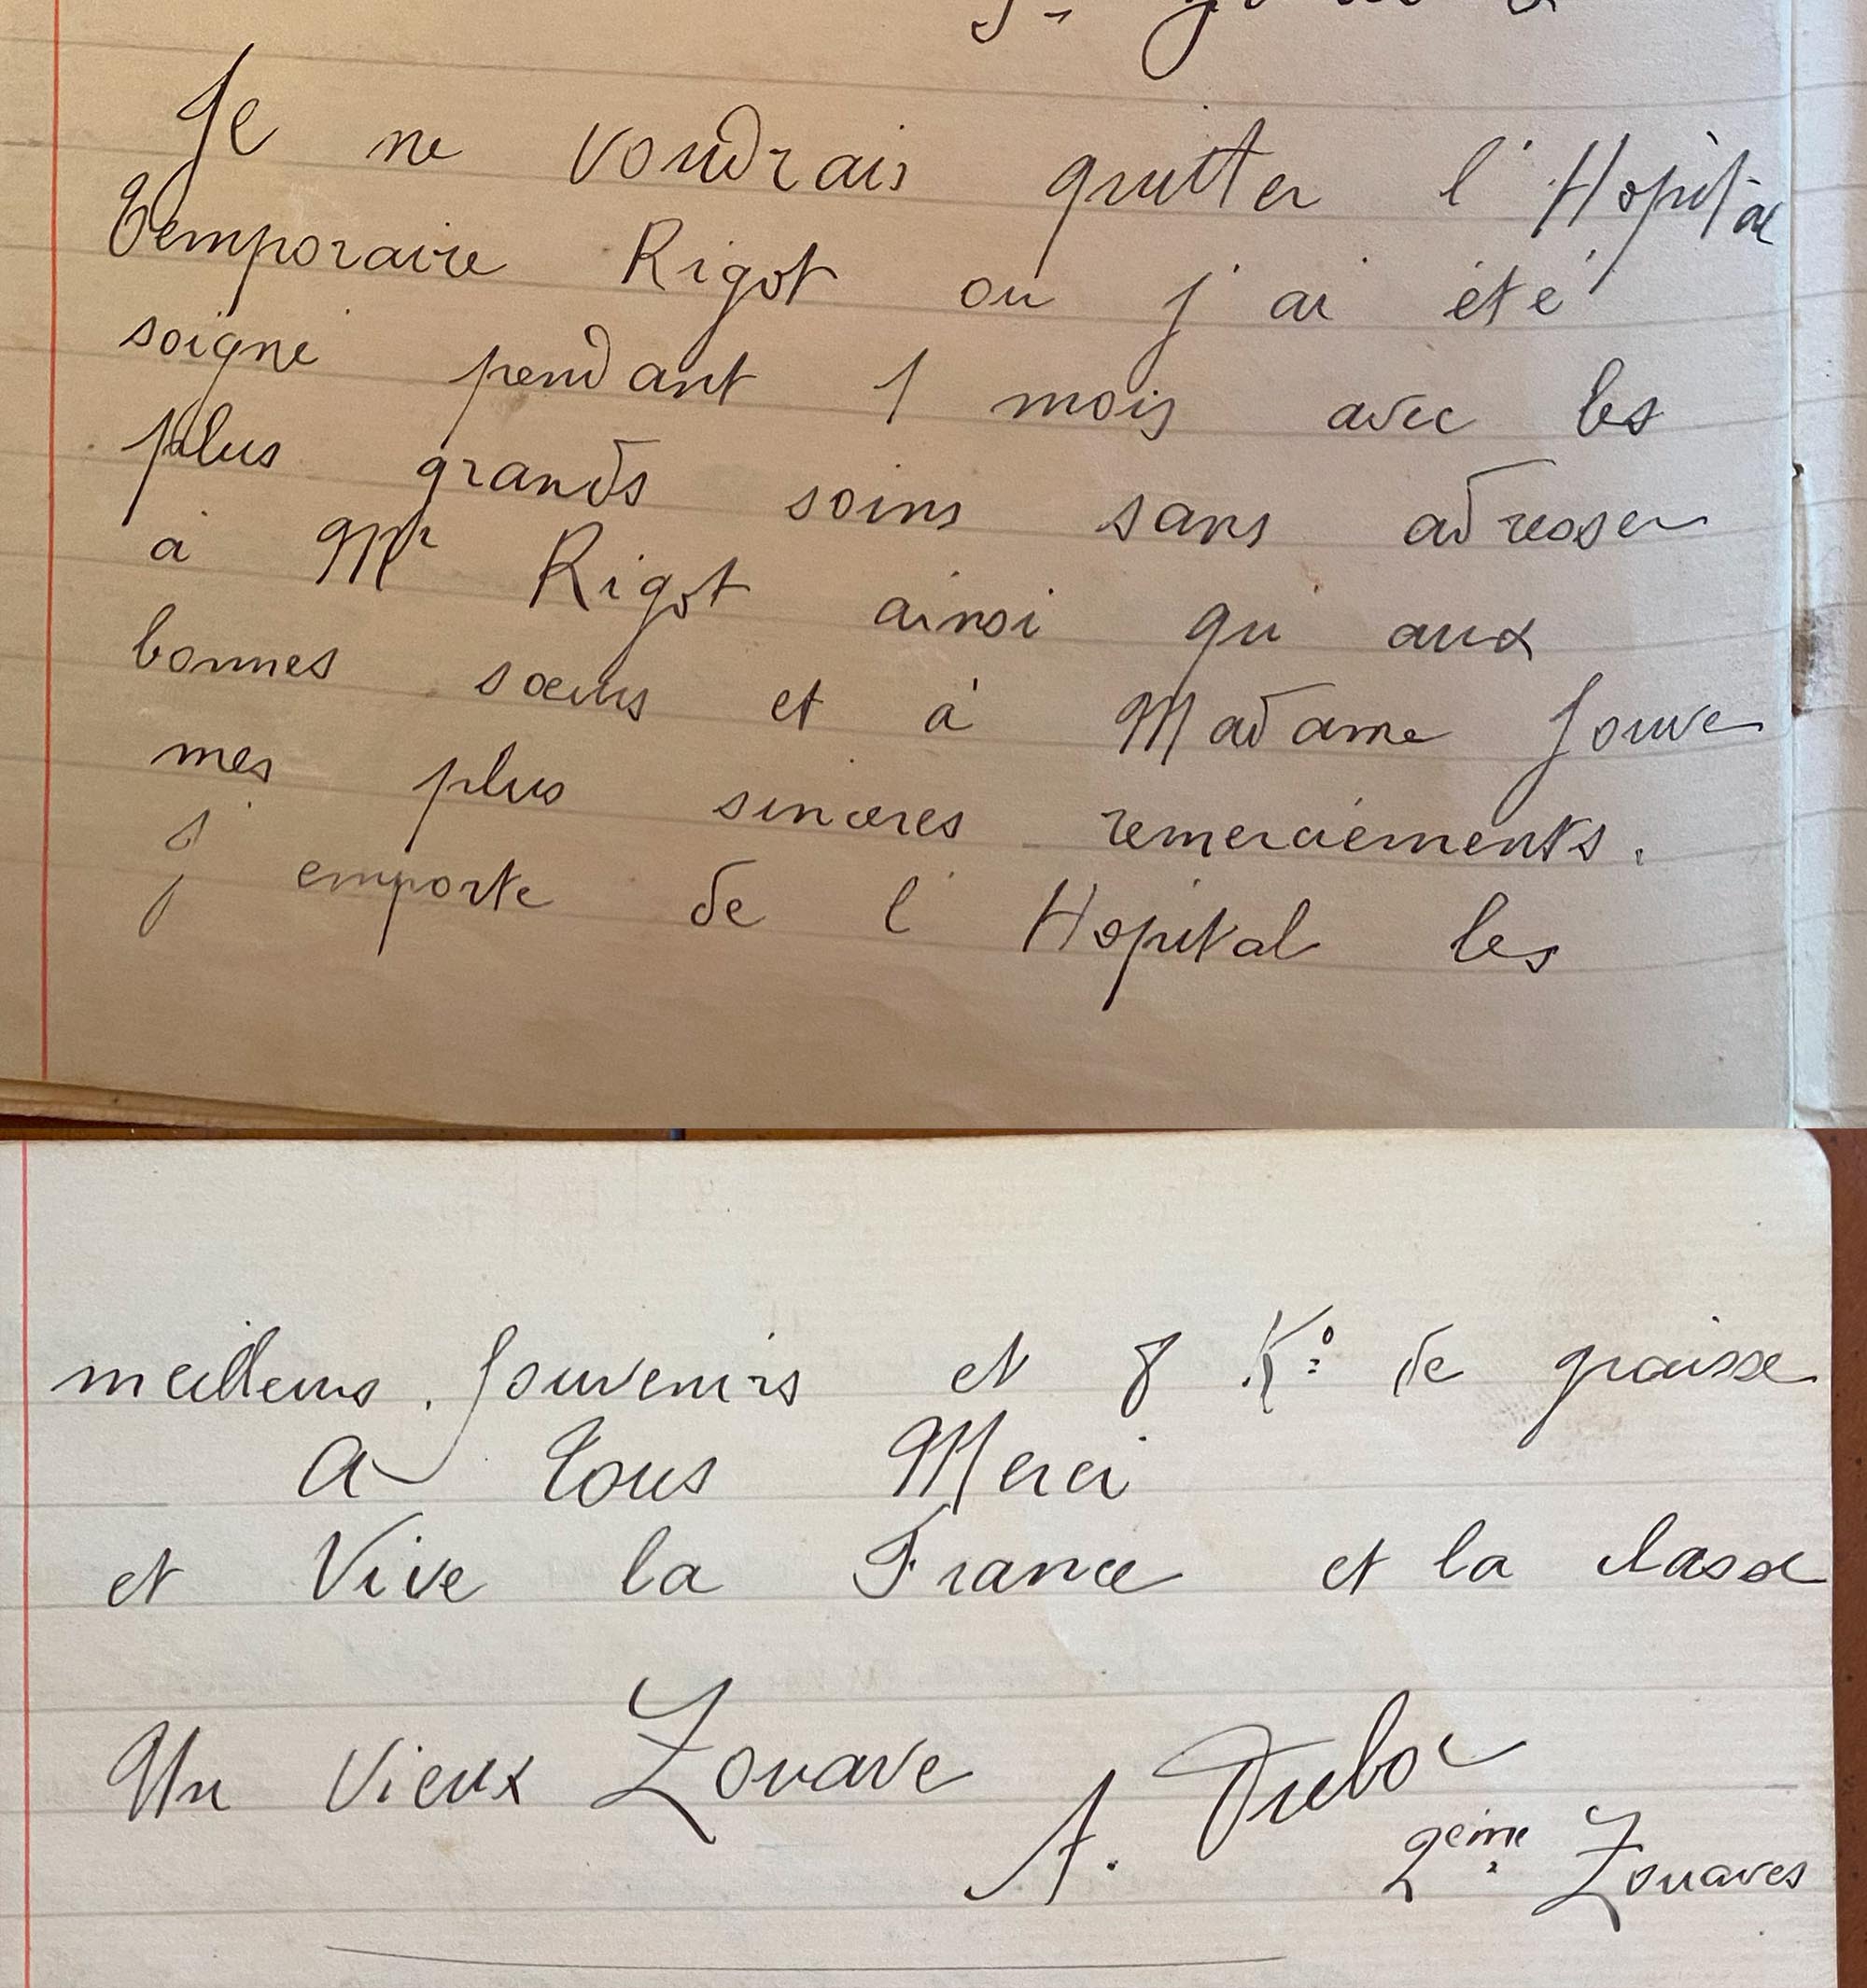 Je ne voudrais quitter l'Hopital
temporaire Rigot ou j'ai été
soigné pendant 1 mois avec les
plus grands soins sans adresser
à Mr Rigot ainsi qu aux
bonnes sœurs et à Madame Jouve
mes plus sinceres remerciements.
j'emporte de l'Hopital les
meilleurs souvenirs et 8 Ko de graisse
A tous Merci
et Vive la France et la classe
Un vieux Zouave
A.
2eme Zouaves